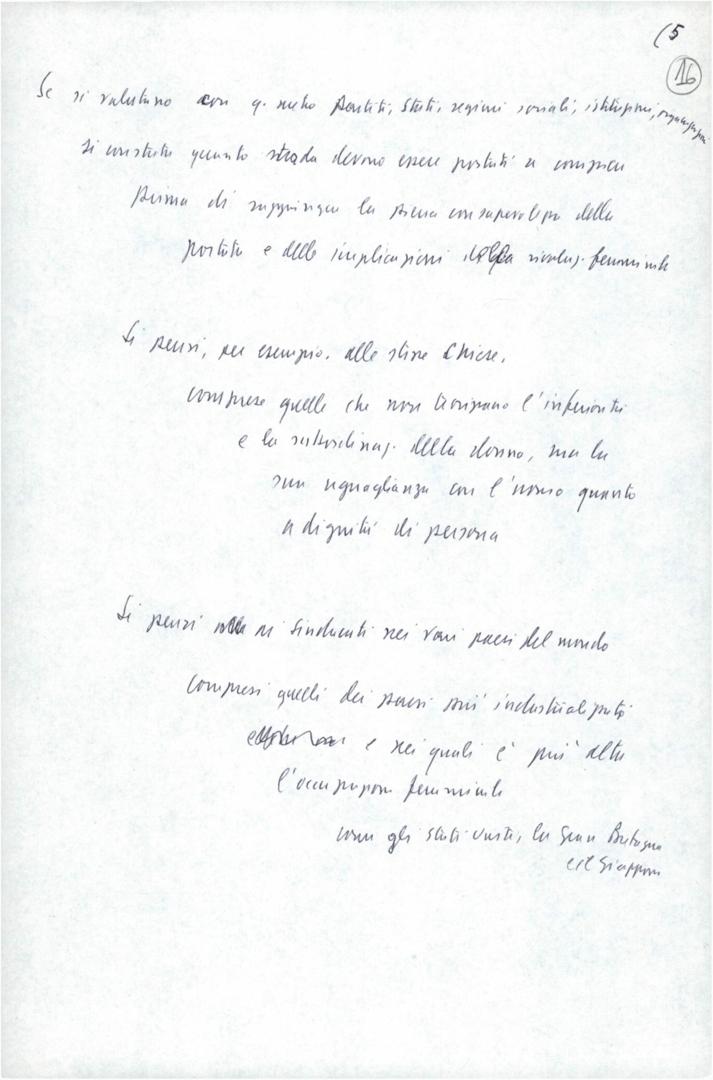 (5
16
Se si valutano con q. metro Partiti, Stati, regimi sociali, istituzioni, organizzazioni
si constata quanta strada devono essere portati a compiere
prima di raggiungere la piena consapevolezza della
portata e delle implicazioni della rivoluz. femminile
Si pensi, per esempio, alle stesse Chiese,
comprese quelle che non teorizzano l'inferiorità
e la subordinaz. della donna, ma la
sua uguaglianza con l'uomo quanto
a dignità di persona
Si pensi ai sindacati nei vari paesi del mondo
compresi quelli dei paesi più industrializzati
e nei quali è più alta
l'occupazione femminile
come gli Stati Uniti, la Gran Bretagna
e il Giappone